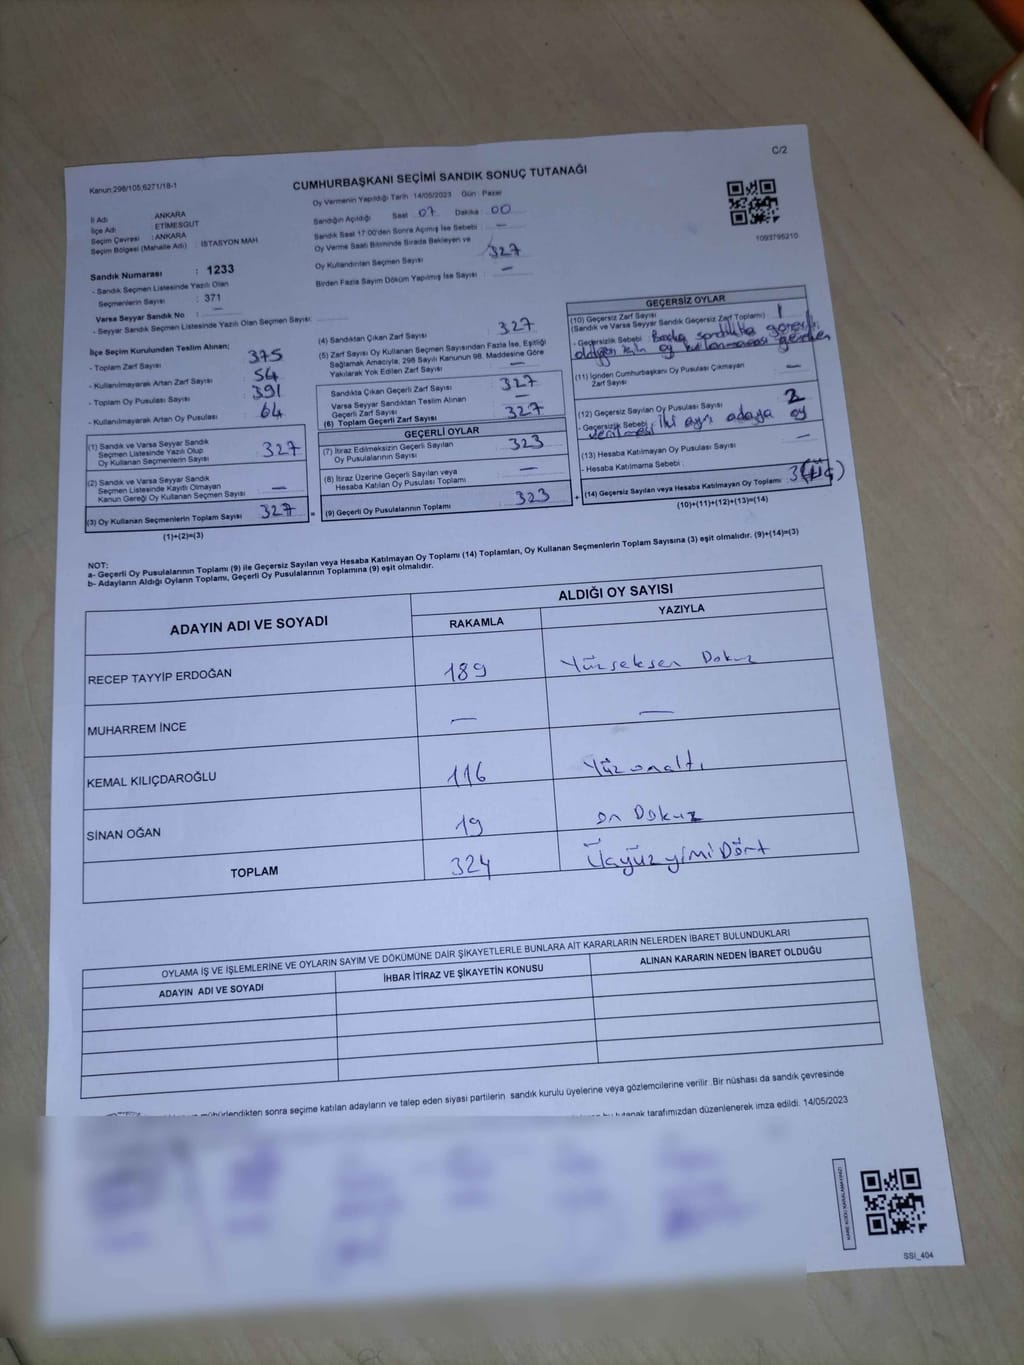 C/2
Kanun:298/105,6271/18-1
CUMHURBAŞKANI SEÇİMİ SANDIK SONUÇ TUTANAĞI
Oy Vermenin Yapıldığı Tarih :14/05/2023 Gün : Pazar
İl Adı : ANKARA
İlçe Adı : ETİMESGUT
Seçim Çevresi : ANKARA
Seçim Bölgesi (Mahalle Adı) : İSTASYON MAH
Sandığın Açıldığı Saat 07 Dakika 00
Sandık Saat 17:00'den Sonra Açılmış İse Sebebi : —
Oy Verme Saati Bitiminde Sırada Bekleyen ve
Oy Kullandırılan Seçmen Sayısı : 327
Birden Fazla Sayım Döküm Yapılmış İse Sayısı : —
1093796210
Sandık Numarası : 1233
- Sandık Seçmen Listesinde Yazılı Olan
Seçmenlerin Sayısı : 371
Varsa Seyyar Sandık No : —
- Seyyar Sandık Seçmen Listesinde Yazılı Olan Seçmen Sayısı:
İlçe Seçim Kurulundan Teslim Alınan;
- Toplam Zarf Sayısı 375
- Kullanılmayarak Artan Zarf Sayısı 54
- Toplam Oy Pusulası Sayısı 391
- Kullanılmayarak Artan Oy Pusulası 64
(1) Sandık ve Varsa Seyyar Sandık
Seçmen Listesinde Yazılı Olup
Oy Kullanan Seçmenlerin Sayısı : 327
(2) Sandık ve Varsa Seyyar Sandık
Seçmen Listesinde Kayıtlı Olmayan
Kanun Gereği Oy Kullanan Seçmen Sayısı : —
(3) Oy Kullanan Seçmenlerin Toplam Sayısı 327
(1)+(2)=(3)
(4) Sandıktan Çıkan Zarf Sayısı 327
(5) Zarf Sayısı Oy Kullanan Seçmen Sayısından Fazla İse, Eşitliği
Sağlamak Amacıyla, 298 Sayılı Kanunun 98. Maddesine Göre
Yakılarak Yok Edilen Zarf Sayısı : —
Sandıkta Çıkan Geçerli Zarf Sayısı : 327
Varsa Seyyar Sandıktan Teslim Alınan
Geçerli Zarf Sayısı : —
(6) Toplam Geçerli Zarf Sayısı : 327
GEÇERLİ OYLAR
(7) İtiraz Edilmeksizin Geçerli Sayılan
Oy Pusulalarının Sayısı : 323
(8) İtiraz Üzerine Geçerli Sayılan veya
Hesaba Katılan Oy Pusulası Toplamı : —
= (9) Geçerli Oy Pusulalarının Toplamı : 323
GEÇERSİZ OYLAR
(10) Geçersiz Zarf Sayısı
(Sandık ve Varsa Seyyar Sandık Geçersiz Zarf Toplamı) : 1
- Geçersizlik Sebebi : Başka sandıkta görevli
olduğu için oy kullanmaması gereken
(11) İçinden Cumhurbaşkanı Oy Pusulası Çıkmayan
Zarf Sayısı : —
(12) Geçersiz Sayılan Oy Pusulası Sayısı 2
- Geçersizlik Sebebi : İki ayrı adaya oy
verilmesi
(13) Hesaba Katılmayan Oy Pusulası Sayısı —
- Hesaba Katılmama Sebebi :
+ (14) Geçersiz Sayılan veya Hesaba Katılmayan Oy Toplamı : 3 (üç)
(10)+(11)+(12)+(13)=(14)
NOT:
a- Geçerli Oy Pusulalarının Toplamı (9) ile Geçersiz Sayılan veya Hesaba Katılmayan Oy Toplamı (14) Toplamları, Oy Kullanan Seçmenlerin Toplam Sayısına (3) eşit olmalıdır. (9)+(14)=(3)
b- Adayların Aldığı Oyların Toplamı, Geçerli Oy Pusulalarının Toplamına (9) eşit olmalıdır.
ADAYIN ADI VE SOYADI
ALDIĞI OY SAYISI
RAKAMLA YAZIYLA
RECEP TAYYİP ERDOĞAN 189 Yüzseksen Dokuz
MUHARREM İNCE — —
KEMAL KILIÇDAROĞLU 116 Yüz onaltı
SİNAN OĞAN 19 on Dokuz
TOPLAM 324 ÜçyüzyimiDört
OYLAMA İŞ VE İŞLEMLERİNE VE OYLARIN SAYIM VE DÖKÜMÜNE DAİR ŞİKAYETLERLE BUNLARA AİT KARARLARIN NELERDEN İBARET BULUNDUKLARI
ADAYIN ADI VE SOYADI İHBAR İTİRAZ VE ŞİKAYETİN KONUSU ALINAN KARARIN NEDEN İBARET OLDUĞU
mühürlendikten sonra seçime katılan adayların ve talep eden siyasi partilerin sandık kurulu üyelerine veya gözlemcilerine verilir .Bir nüshası da sandık çevresinde
bu tutanak tarafımızdan düzenlenerek imza edildi. 14/05/2023
KARE KODU KARALAMAYINIZ!
SSI_404